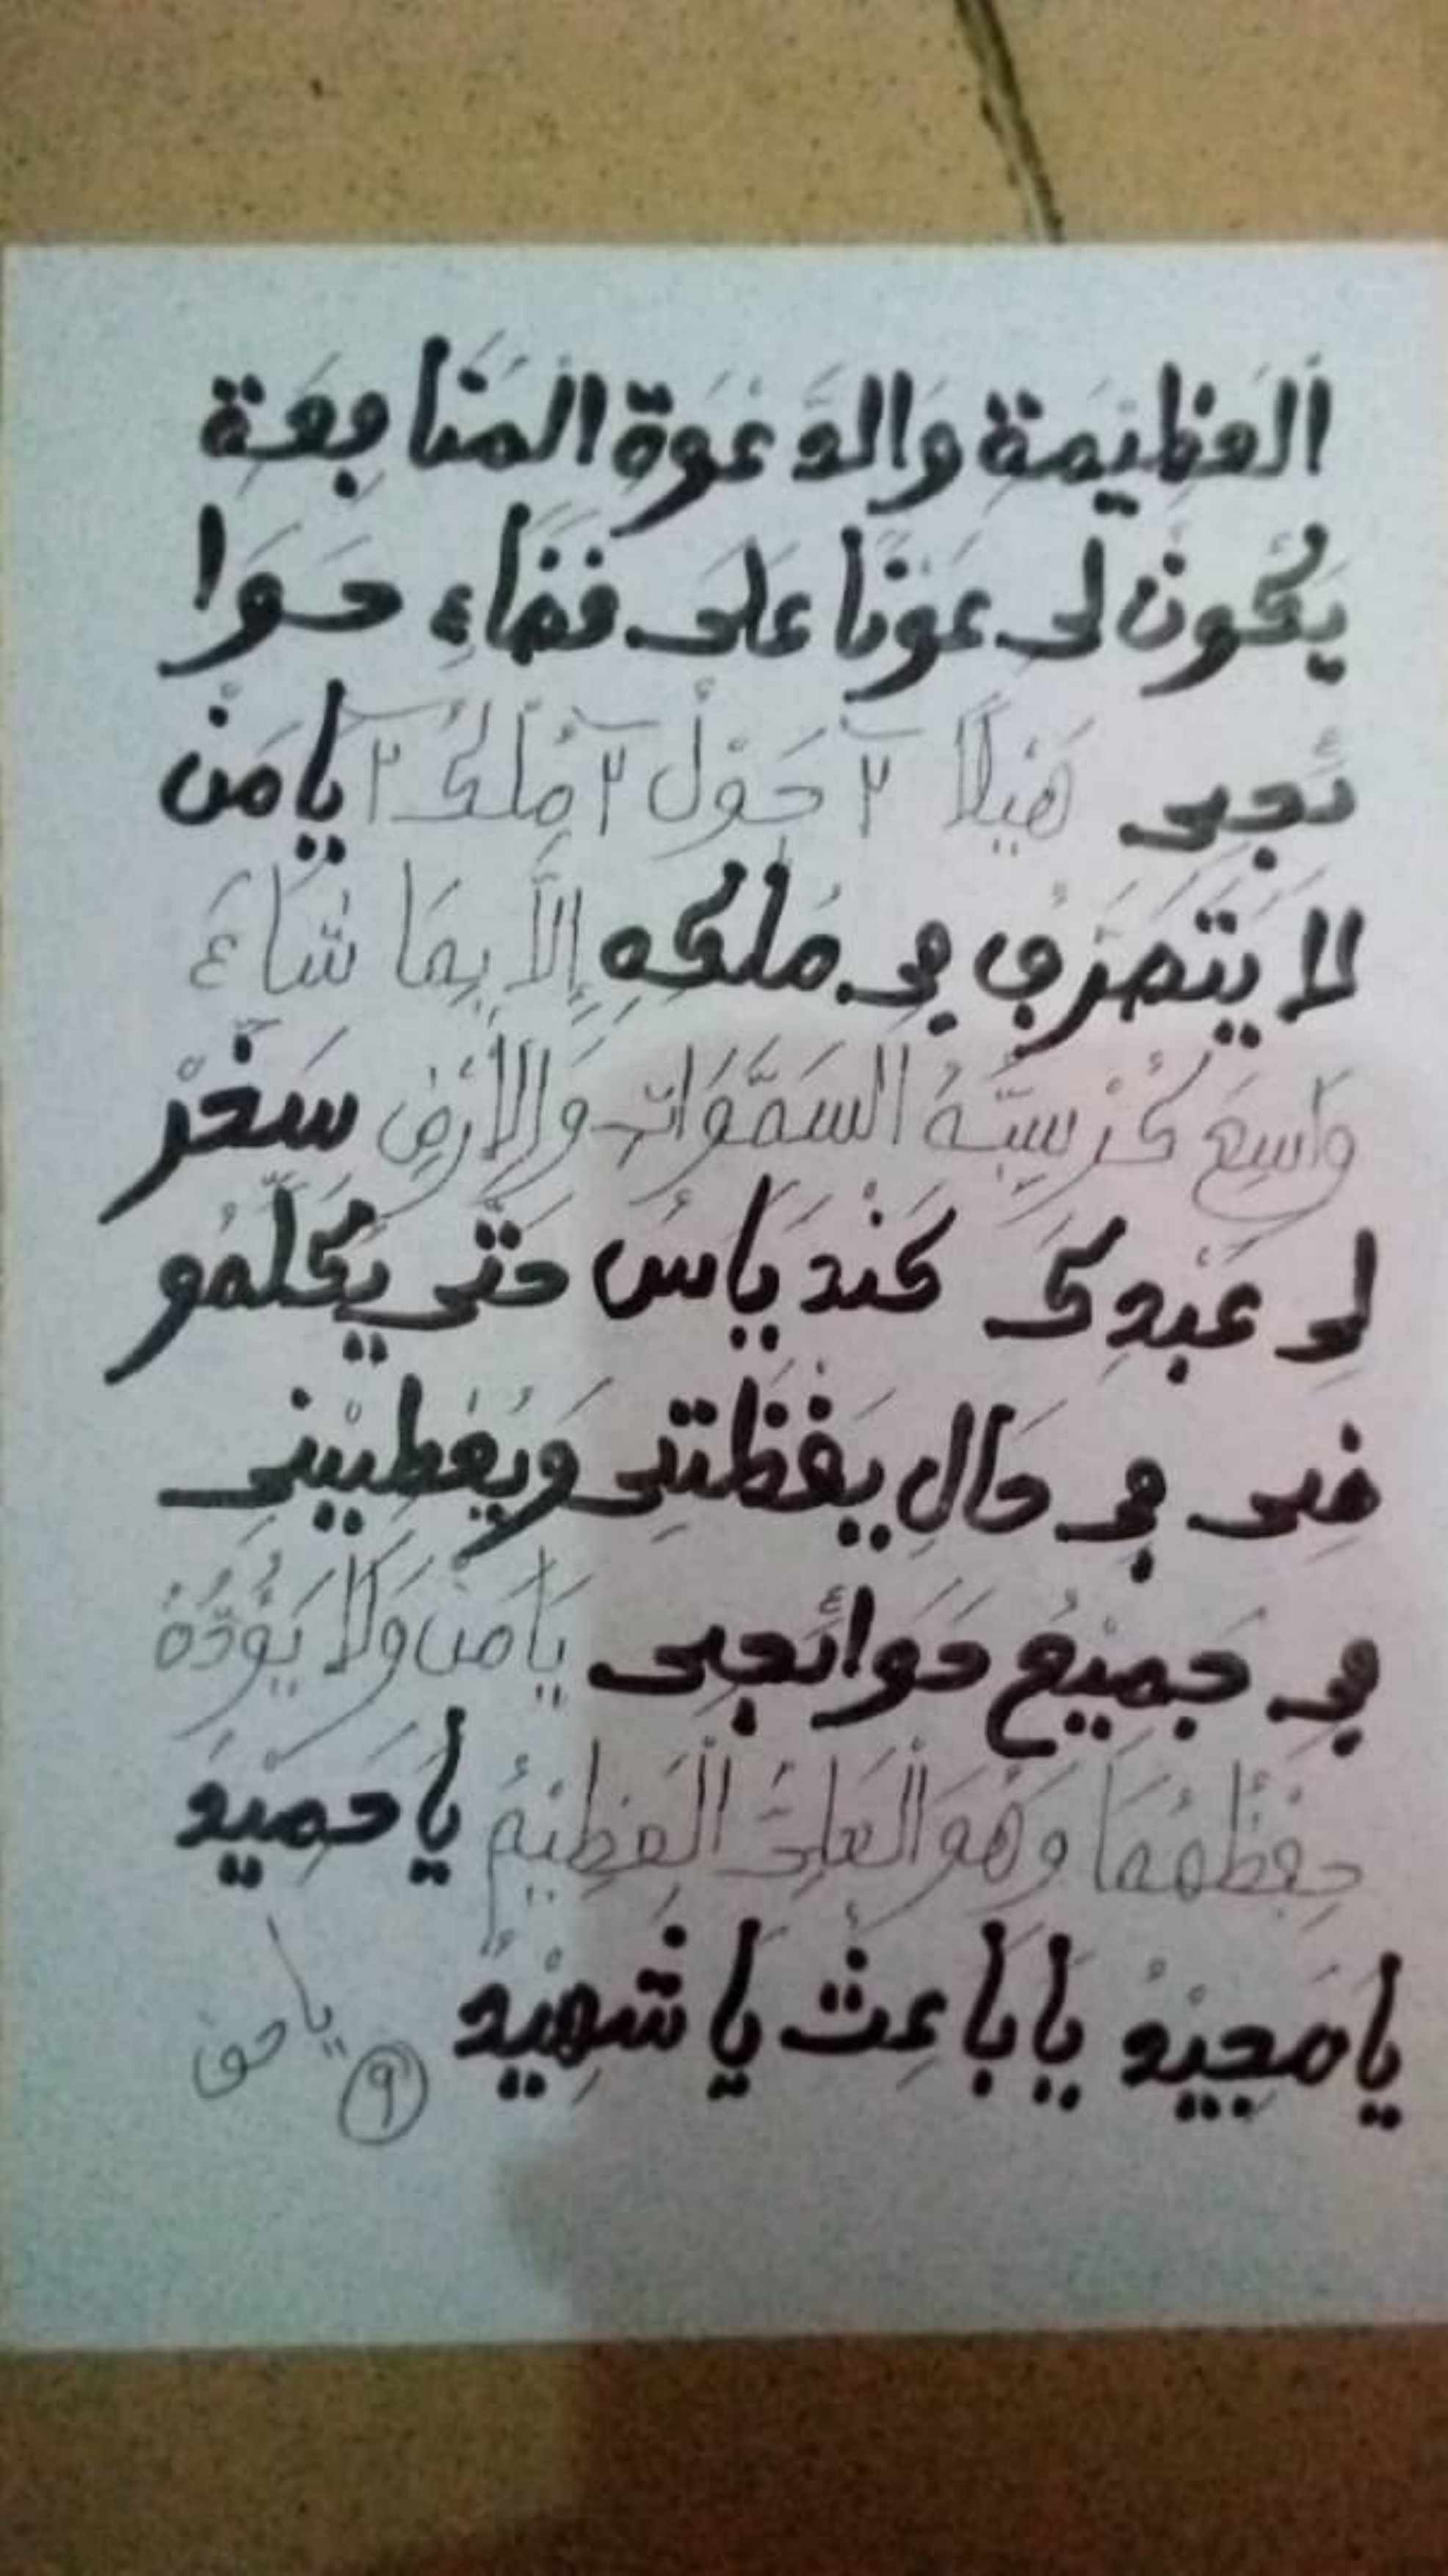 العَظِيْمَةِ وَالدَّعْوَةِ المَنَافِعَةِ
يَكُونُ لِى عَوْنًا عَلَى قَضَاءِ حَوَا
ئَجِى هَيْلَا ٢ حَوْلٌ ٢ مِلْكٌ ٢ يَا مَنْ
لَا يَتَصَرَّفُ فِى مُلْكِهِ إِلَّا بِمَا شَاءَ
وَاسِعَ كُرْسِيُّهُ السَّمَوَاتِ وَالأَرْضِ سَخِّرْ
لِى عَبْدِكَ كَنْدِيَاسُ حَتَّى يُكَلِّمُو
نِى فِى حَالِ يَقْظَتِى وَيُعْطِيْنِى
فِى جَمِيْعِ حَوَائَجِى يَا مَنْ وَلَا يَؤُدُهُ
حِفْظُهُمَا وَهُوَ الْعَلِىُّ الْعَظِيْمُ يَا حَمِيْدُ
يَا مَجِيْدُ يَا بَاعِثُ يَا شَهِيْدُ ٩ يا حق